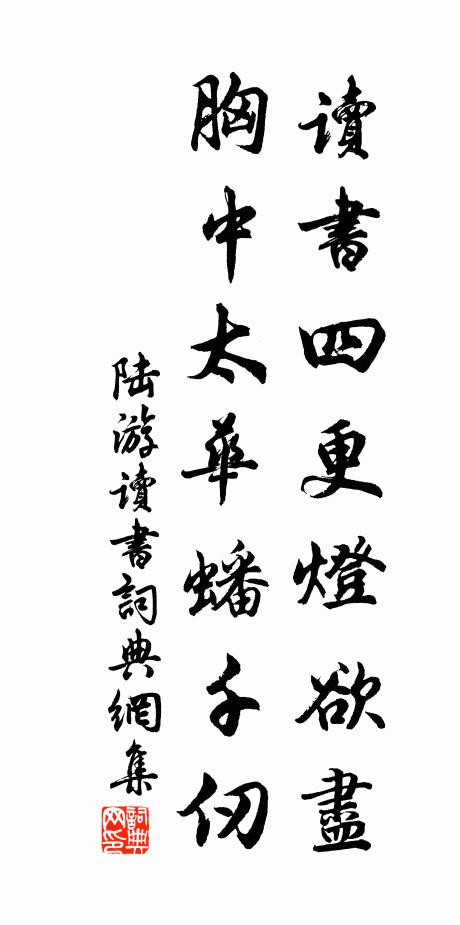 讀書四更燈欲盡
胸中太華蟠千仞
陆游讀書詞典網集
詞典网印